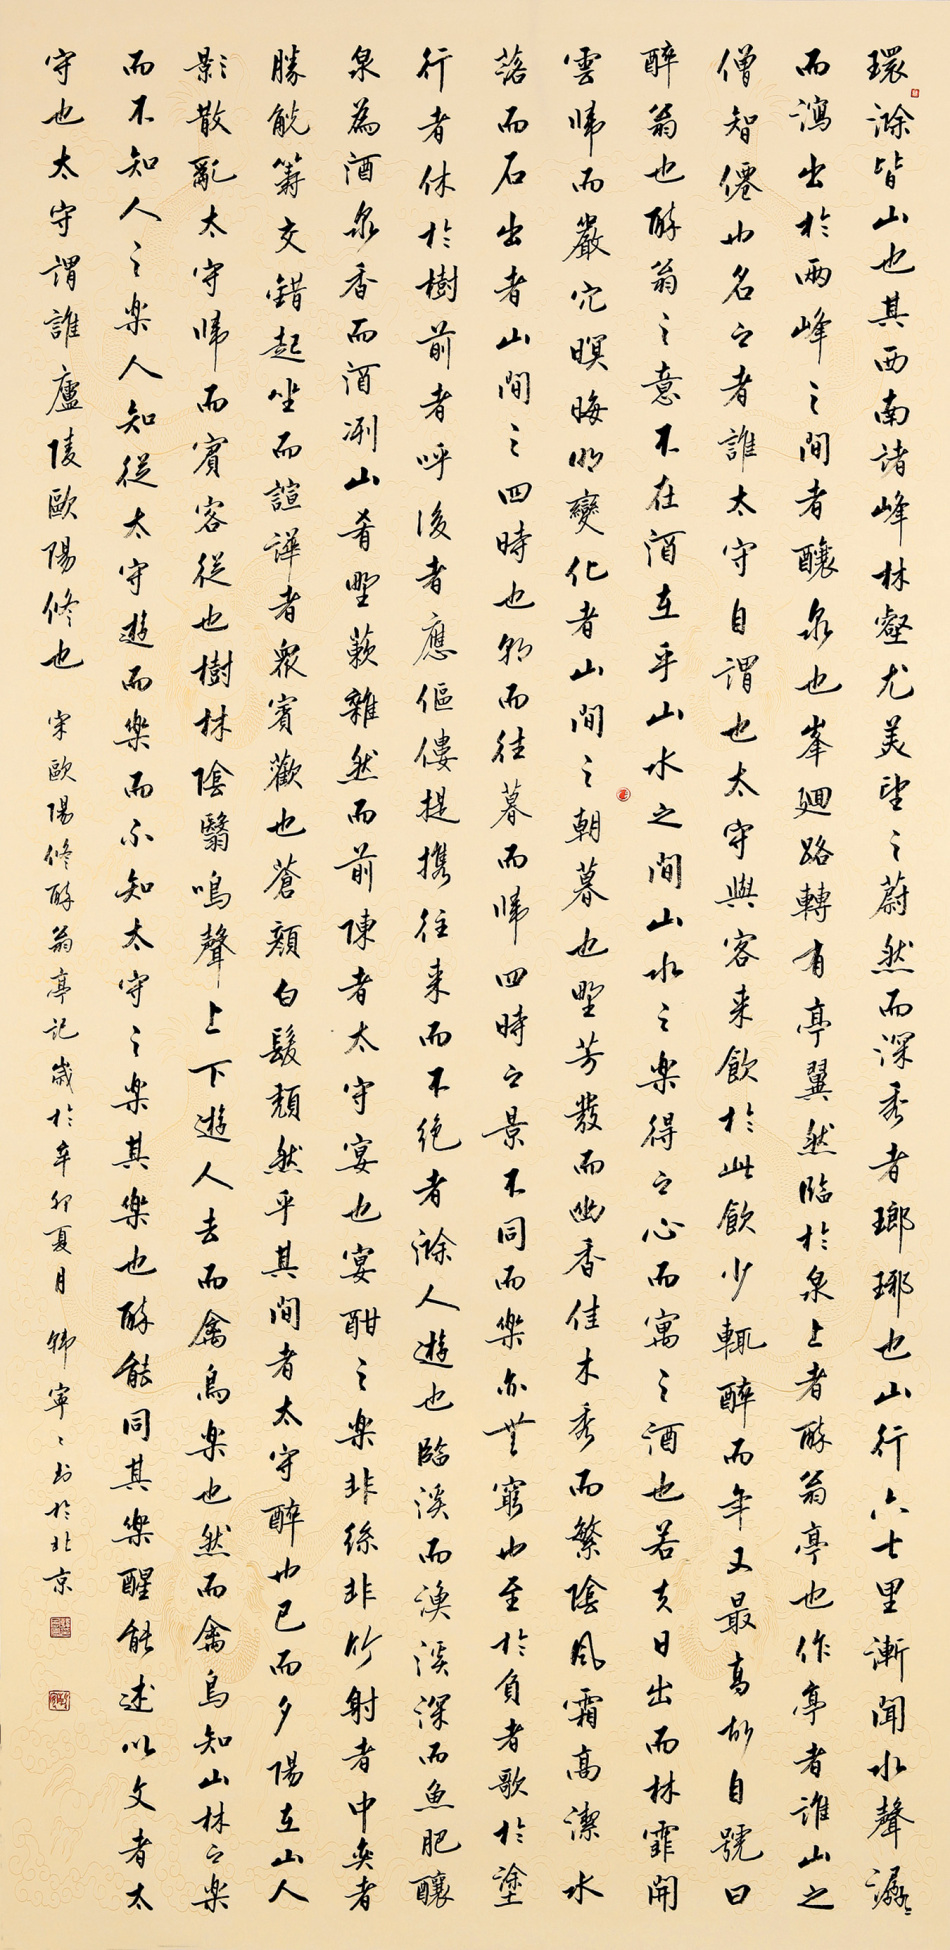 環滁皆山也其西南諸峰林壑尤美望之蔚然而深秀者瑯琊也山行六七里漸聞水聲潺〻
而瀉出於兩峰之間者釀泉也峯廻路轉有亭翼然臨於泉上者醉翁亭也作亭者誰山之
僧智僊也名之者誰太守自謂也太守與客来飲於此飲少輒醉而年又最高故自號曰
醉翁也醉翁之意不在酒在乎山水之間山水之樂得之心而寓之酒也若夫日出而林霏開
雲歸而巖穴暝晦明變化者山間之朝暮也野芳發而幽香佳木秀而繁陰風霜高潔水
落而石出者山間之四時也朝而往暮而歸四時之景不同而樂亦無窮也至於負者歌於塗
行者休於樹前者呼後者應傴僂提携往来而不絶者滁人遊也臨溪而漁溪深而魚肥釀
泉為酒泉香而酒洌山肴野蔌雜然而前陳者太守宴也宴酣之樂非絲非竹射者中奕者
勝觥籌交錯起坐而諠譁者衆賓歡也蒼顏白髮頹然乎其間者太守醉也已而夕陽在山人
影散亂太守歸而賓客從也樹林陰翳鳴聲上下遊人去而禽鳥樂也然而禽鳥知山林之樂
而不知人之樂人知從太守遊而樂而不知太守之樂其樂也醉能同其樂醒能述以文者太
守也太守謂誰廬陵歐陽修也 宋歐陽修醉翁亭記歲於辛卯夏月 韩寧〻書於北京